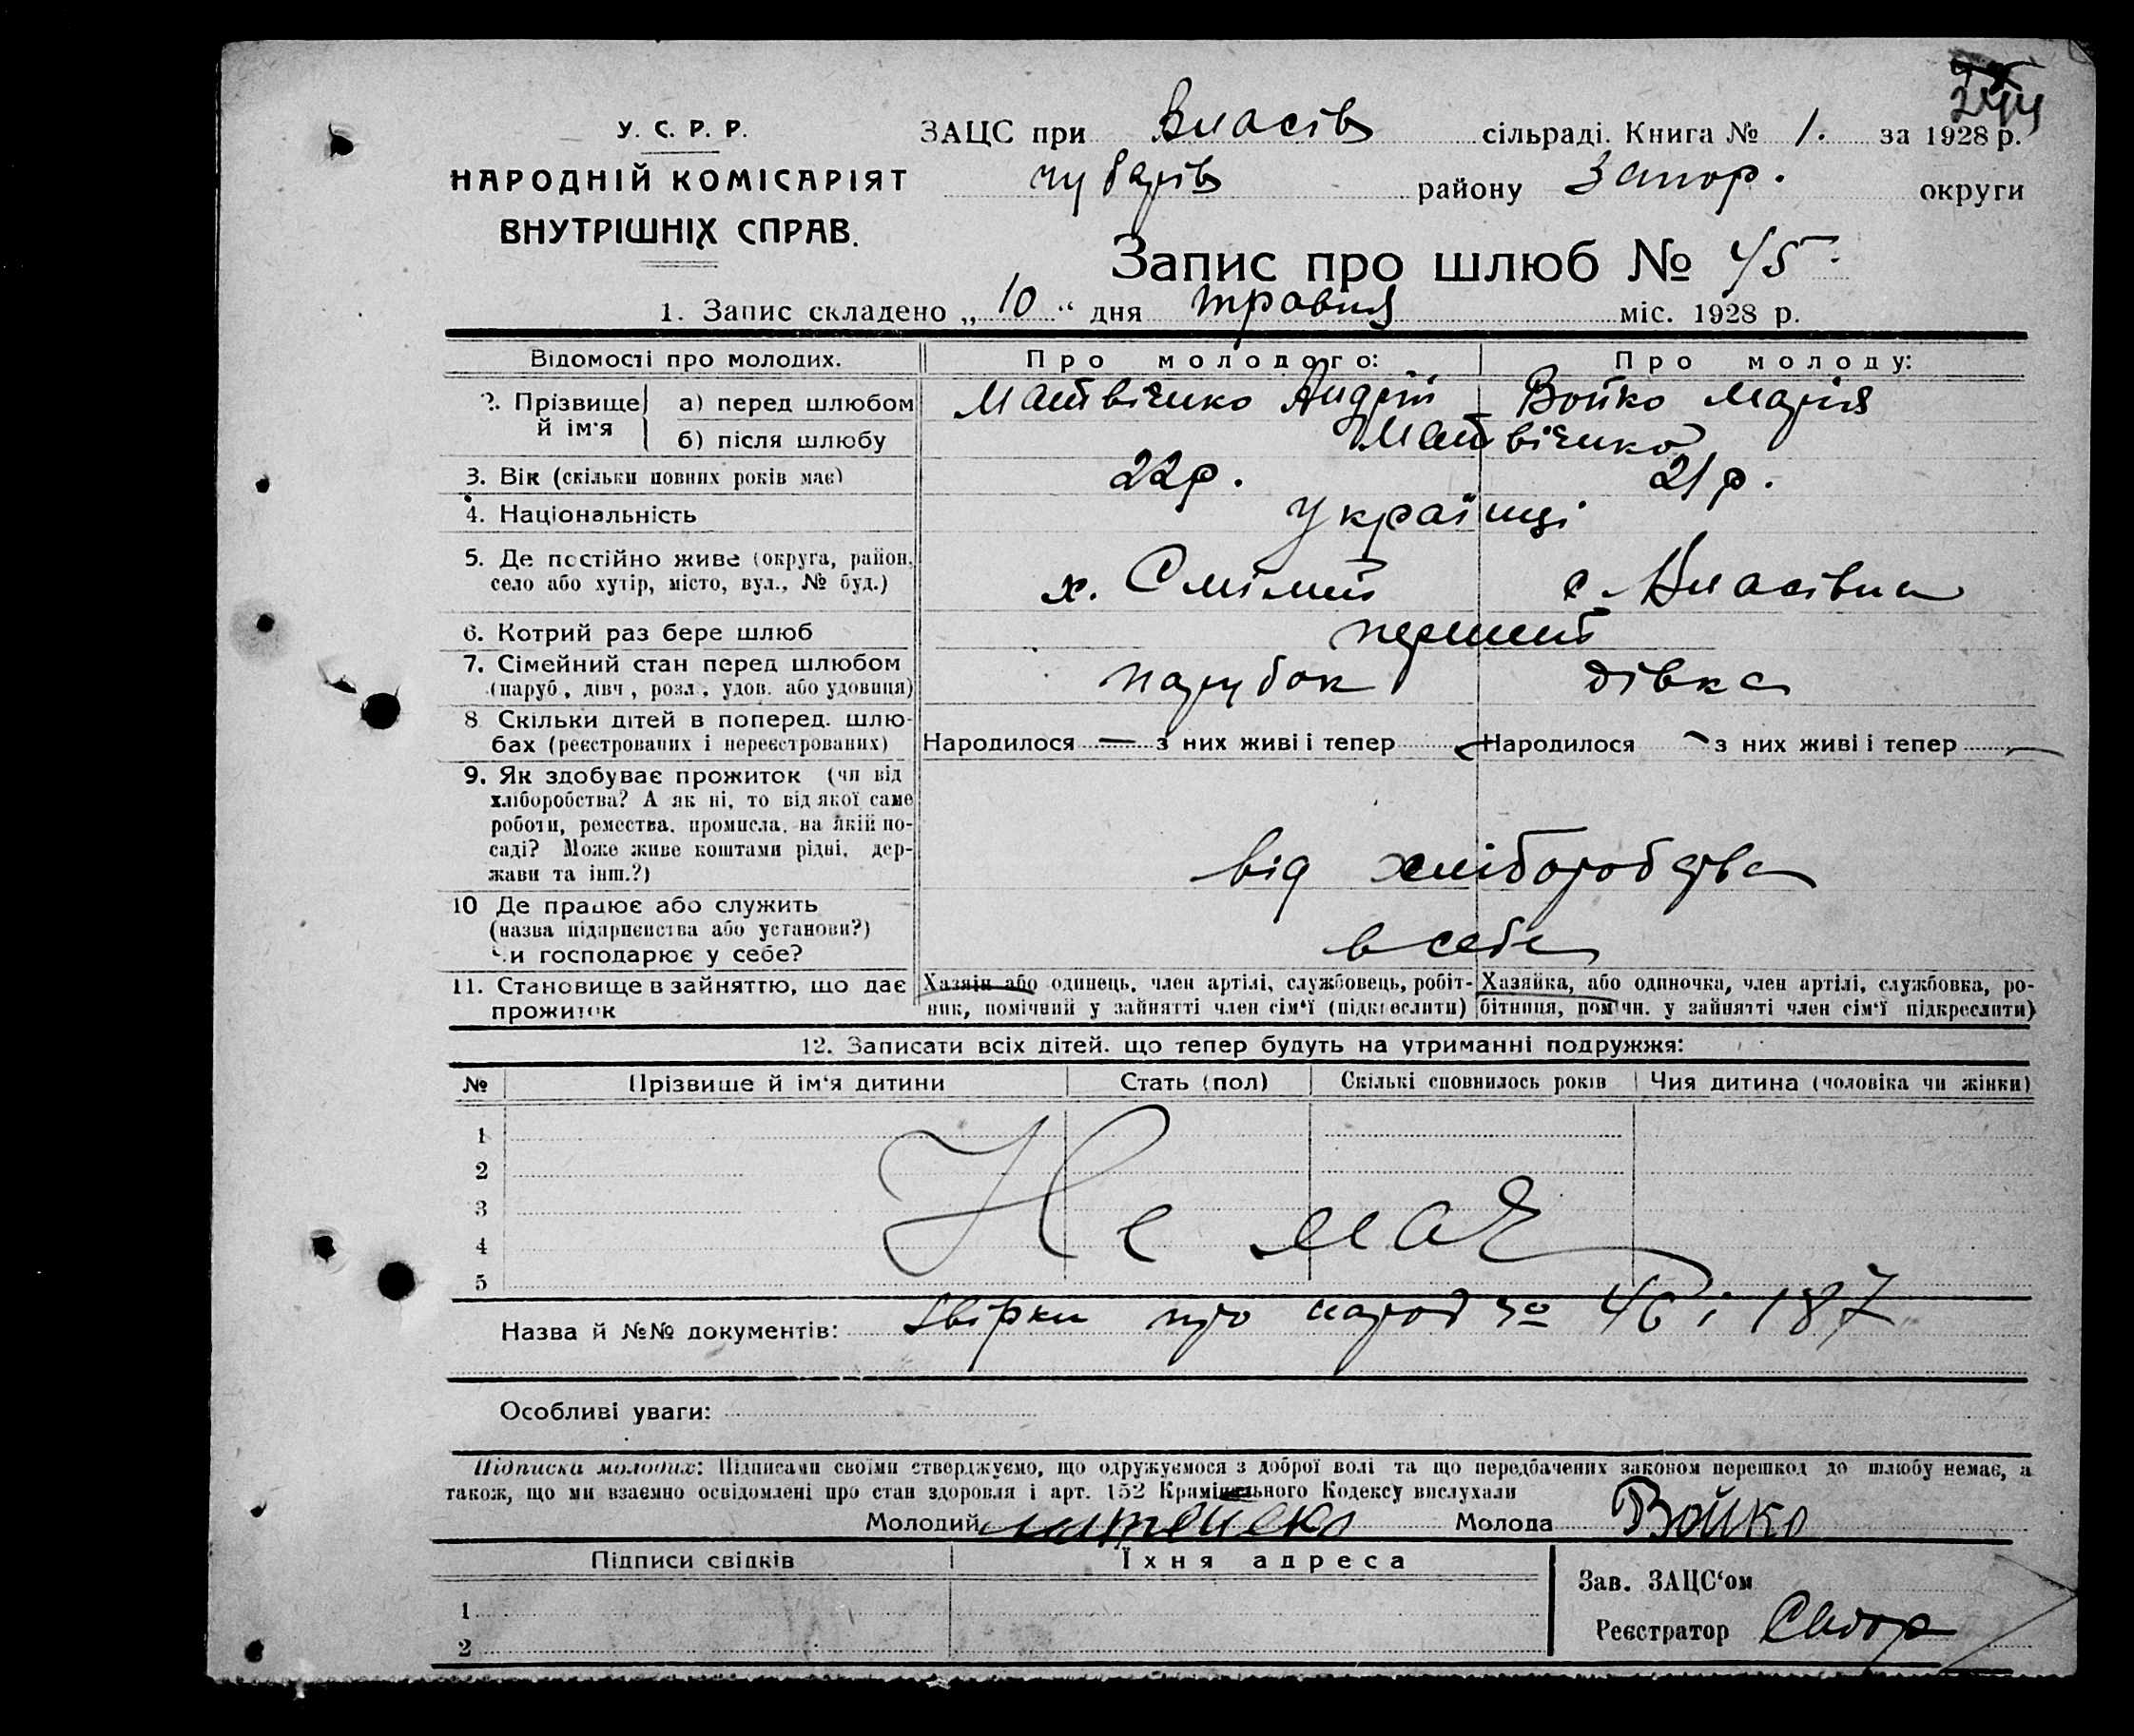 244
У. С. Р. Р.
НАРОДНІЙ КОМІСАРІЯТ
ВНУТРІШНІХ СПРАВ.
ЗАЦС при Власів сільраді. Книга № 1. за 1928 р.
Чубарів району Запор. округи
Запис про шлюб № 45
1. Запис складено „10“ дня травня міс. 1928 р.
Відомості про молодих. Про молодого: Про молоду:
2. Прізвище й ім'я а) перед шлюбом Матвієнко Андрій Бойко Марія
б) після шлюбу Матвієнко
3. Вік (скільки повних років має) 22 р. 21 р.
4. Національність Українці
5. Де постійно живе (округа, район,
село або хутір, місто, вул., № буд.) х. Смілий с. Власівка
6. Котрий раз бере шлюб перший
7. Сімейний стан перед шлюбом
(паруб., дівч., розл., удов. або удовиця) парубок дівка
8 Скільки дітей в поперед. шлю-
бах (реєстрованих і нереєстрованих) Народилося — з них живі і тепер — Народилося — з них живі і тепер —
9. Як здобуває прожиток (чи від
хліборобства? А як ні, то від якої саме
роботи, ремества, промисла, на якій по-
саді? Може живе коштами рідні, дер-
жави та інш.?) від хліборобства
10 Де працює або служить
(назва підприєнства або установи?)
Чи господарює у себе? в себе
11. Становище в зайняттю, що дає
прожиток
Хазяїн або одинець, член артілі, службовець, робіт-
ник, помічний у зайнятті член сім'ї (підкреслити)
Хазяйка, або одиночка, член артілі, службовка, ро-
бітниця, помічн. у зайнятті член сім'ї підкреслити)
12. Записати всіх дітей, що тепер будуть на утриманні подружжя:
№ Прізвище й ім'я дитини Стать (пол) Скількі сповнилось років Чия дитина (чоловіка чи жінки)
1
2
3
4
5
Не має
Назва й №№ документів: Звірки про народ № 46 і 187
Особливі уваги:
Підписка молодих: Підписами своїми стверджуємо, що одружуємося з доброї волі та що передбачених законом перешкод до шлюбу немає, а
також, що ми взаємно освідомлені про стан здоровля і арт. 152 Кримінального Кодексу вислухали
Молодий Молода Бойко
Підписи свідків Їхня адреса
1
2
Зав. ЗАЦС'ом
Реєстратор